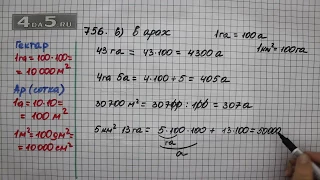 4DA5.RU
756. в) в арах
1га = 100а
1км² = 100га
Гектар
1га = 100·100 =
= 10000 м²
Ар (сотка)
1а = 10·10 =
= 100 м²
1м² = 100дм² =
= 10000 см²
43 га = 43·100 = 4300 а
4га 5а = 4·100 + 5 = 405а
30700 м² = 30700 : 100 = 307а
5 км² 13га = 5·100·100 + 13·100 = 50000
га
а